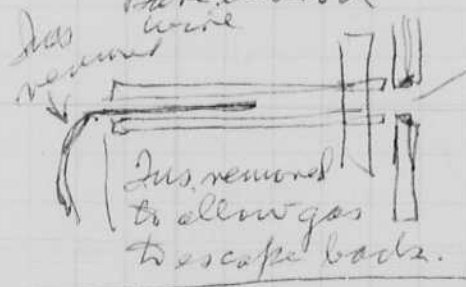 wire
Ins
removed
Ins. removed
to allow gas
to escape back.